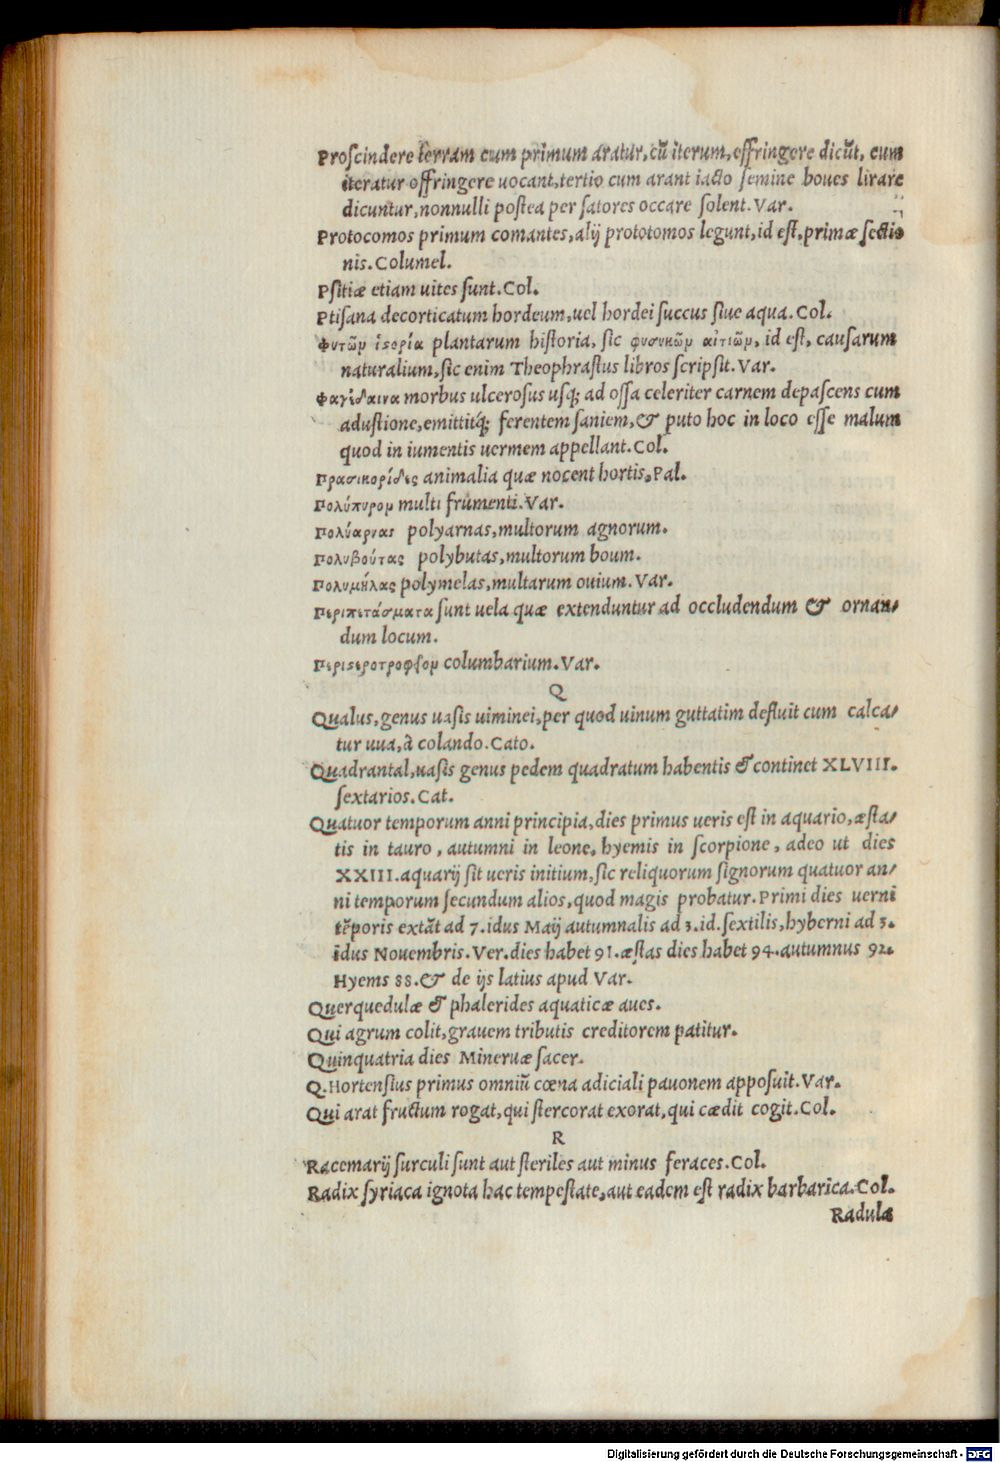 Proſcindere terram cum primum aratur, cū iterum, effringere dicūt, cum
iteratur offringere uocant, tertio cum arant iacto ſemine boues lirare
dicuntur, nonnulli poſtea per ſatores occare ſolent. Var.
Protocomos primum comantes, alij prototomos legunt, id eſt, primæ ſectio
nis. Columel.
Pſitiæ etiam uites ſunt. Col.
Ptiſana decorticatum hordeum, uel hordei ſuccus ſiue aqua. Col.
Φυτῶμ ἱϛορία plantarum hiſtoria, ſic φυσυκῶμ αἰτιῶμ, id eſt, cauſarum
naturalium, ſic enim Theophraſtus libros ſcripſit. Var.
Φαγίδαινα morbus ulceroſus uſq; ad oſſa celeriter carnem depaſcens cum
aduſtione, emittitq́; ferentem ſaniem, & puto hoc in loco eſſe malum
quod in iumentis uermem appellant. Col.
Πρασικορίδες animalia quæ nocent hortis. Pal.
Πολύπυρομ multi frumenti. Var.
Πολύαρνας polyarnas, multorum agnorum.
Πολυβούτας polybutas, multorum boum.
Πολυμήλας polymelas, multarum ouium. Var.
Περιπετάσματα ſunt uela quæ extenduntur ad occludendum & ornan/
dum locum.
Περιϛεροτροφεῖομ columbarium. Var.
Q
Qualus, genus uaſis uiminei, per quod uinum guttatim defluit cum calca/
tur uua, à colando. Cato.
Quadrantal, uaſis genus pedem quadratum habentis & continet XLVIII.
ſextarios. Cat.
Quatuor temporum anni principia, dies primus ueris eſt in aquario, æſta/
tis in tauro, autumni in leone, hyemis in ſcorpione, adeo ut dies
XXIII. aquarij ſit ueris initium, ſic reliquorum ſignorum quatuor an/
ni temporum ſecundum alios, quod magis probatur. Primi dies uerni
tẽporis extāt ad 7. idus Maij autumnalis ad 3. id. ſextilis, hyberni ad 3.
idus Nouembris. Ver. dies habet 91. æſtas dies habet 94. autumnus 92.
Hyems 88. & de ijs latius apud Var.
Querquedulæ & phalerides aquaticæ aues.
Qui agrum colit, grauem tributis creditorem patitur.
Quinquatria dies Mineruæ ſacer.
Q. Hortenſius primus omniū cœna adiciali pauonem appoſuit. Var.
Qui arat fructum rogat, qui ſtercorat exorat, qui cædit cogit. Col.
R
Racemarij ſurculi ſunt aut ſteriles aut minus feraces. Col.
Radix ſyriaca ignota hac tempeſtate, aut eadem eſt radix barbarica. Col.
Radula
Digitalisierung gefördert durch die Deutsche Forschungsgemeinschaft - DFG